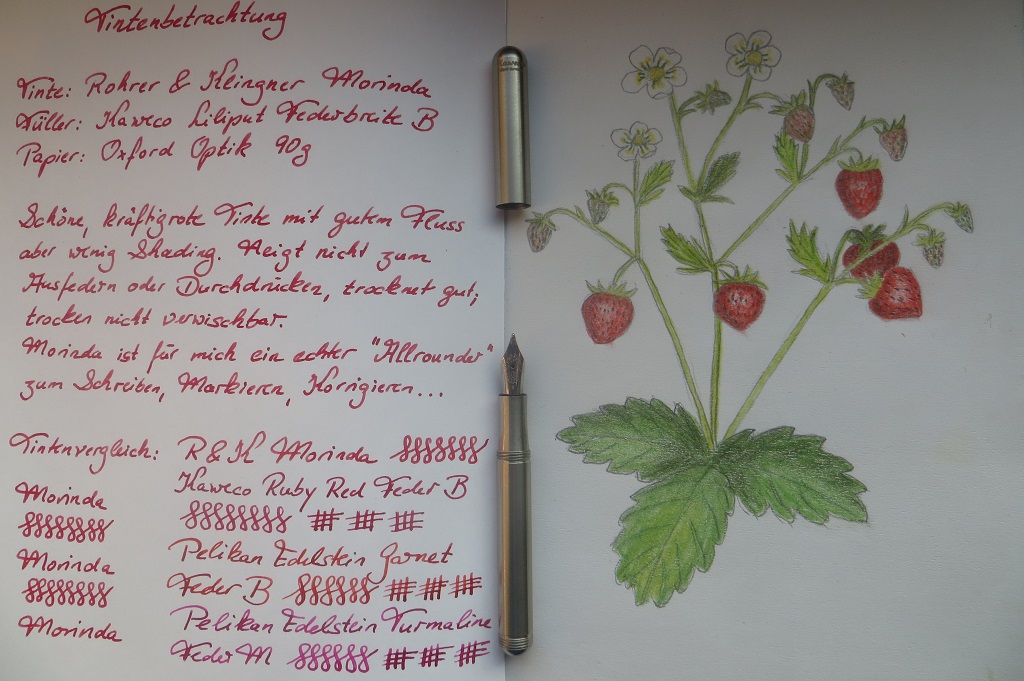 Tintenbetrachtung
Tinte: Rohrer & Klingner Morinda
Füller: Kaweco Liliput Federbreite B
Papier: Oxford Optik 90g
Schöne, kräftigrote Tinte mit gutem Fluss
aber wenig Shading. Neigt nicht zum
Ausfedern oder Durchdrücken, trocknet gut;
trocken nicht verwischbar.
Morinda ist für mich ein echter "Allrounder"
zum Schreiben, Markieren, Korrigieren...
Tintenvergleich: R & K Morinda
Morinda Kaweco Ruby Red Feder B
Morinda Pelikan Edelstein Garnet
Feder B
Morinda Pelikan Edelstein Turmaline
Feder M